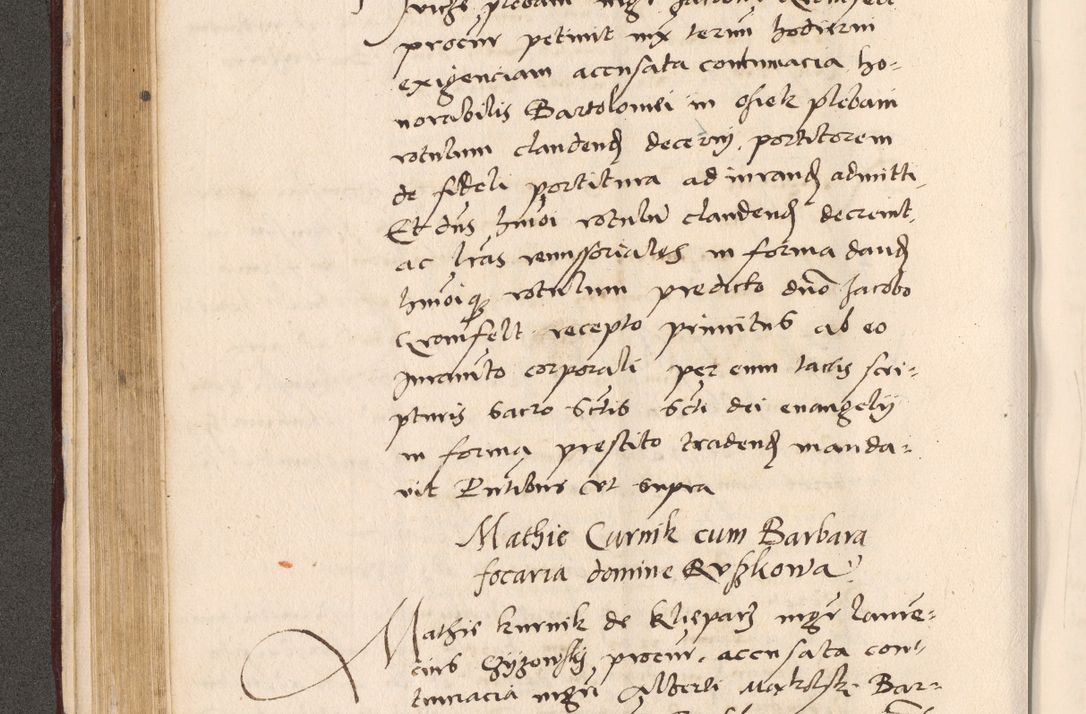 procur petivit iux termi hodierni
exigenciam accusata contumacia ho-
norabilis Bartolomei in Osiek plebani
rotulum claudend decerni, portitorem
de fideli portitura ad iurand admitti,
Et dns hmoi rotulu claudend decrevit,
ac lras remissoriales in forma dand
hmoiqz rotulum predicto dno Jacobo
Cromfelt recepto primitus ab eo
Juramto corporali per eum tactis scri-
pturis sacro sctis scti dei evangelij
in forma prestito tradend manda-
vit Pntibus Ut supra
Mathie Curnik cum Barbara
focaria domine Ruszkowa
Mathie kurnik de Kliepars mgr Lauren-
cius procur, accusata con-
tumacia mgri Alberti Bar-